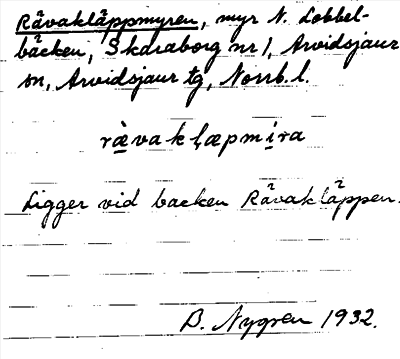 Rävakläppmyren, myr N. Lobbel-
bäcken, Skaraborg nr 1, Arvidsjaur
sn, Arvidsjaur tg, Norrb. l.
rävakļæpmira
Ligger vid backen Rävakläppen.
B. Nygren 1932.